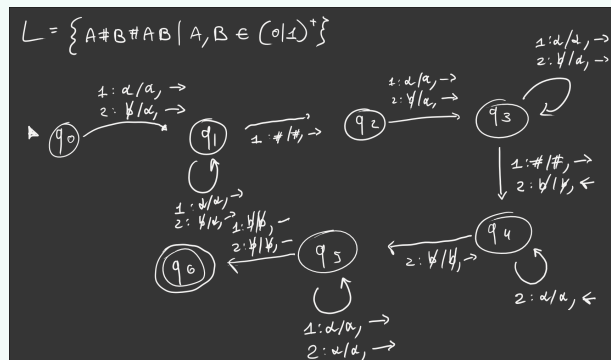 L = { A#B#AB | A, B ∈ (0|1)⁺ }
1: α/α, →
2: ƀ/α, →
1: α/α, →
2: ƀ/α, →
1: α/α, →
2: ƀ/α, →
q0
q1
1: #/#, →
q2
q3
1: α/α, →
2: ƀ/α, →
1: #/#, →
2: ƀ/ƀ, ←
1: ƀ/ƀ, –
2: ƀ/ƀ, –
q6
q5
2: ƀ/ƀ, →
q4
2: α/α, ←
1: α/α, →
2: α/α, →